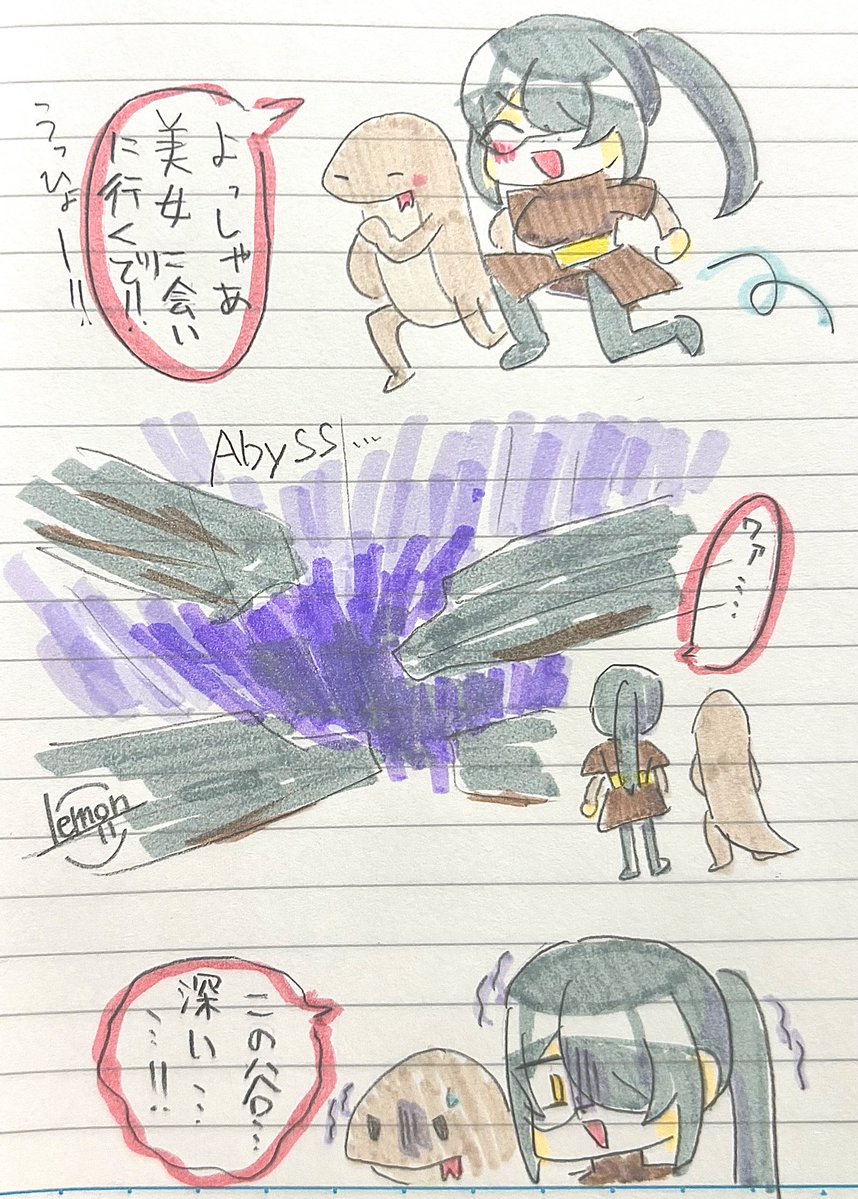 よっしゃあ
美女に会い
に行くで!!
うっひょー!!
Abyss…
ワァ……
lemon
この谷…
深い…
…!!